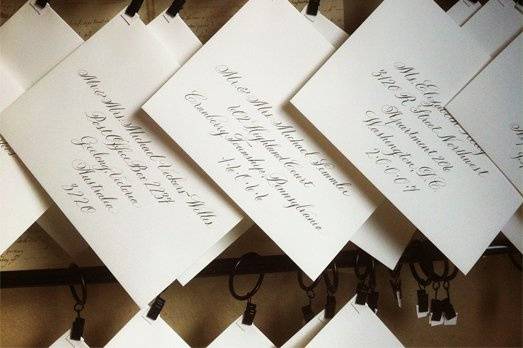 Mr & Mrs Michael Vickers-Willis
Post Office Box 2237
Geelong, Victoria
Australia
3220
Mr & Mrs Michael
602 Highland Court
Cranberry Township, Pennsylvania
16066
Ms
3120 R Street Northwest
Apartment 206
Washington, DC
20007